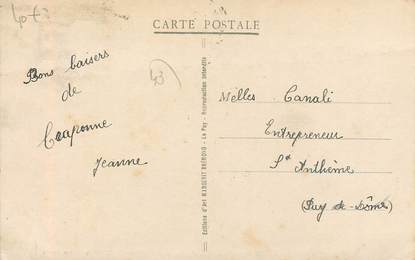 CARTE POSTALE
Bons baisers
de
Craponne
Jeanne
43
Editions d'Art MARGERIT BRÉMOND - Le Puy - Reproduction interdite
Melles Canali
Entrepreneur
St Anthème
(Puy-de-Dôme)